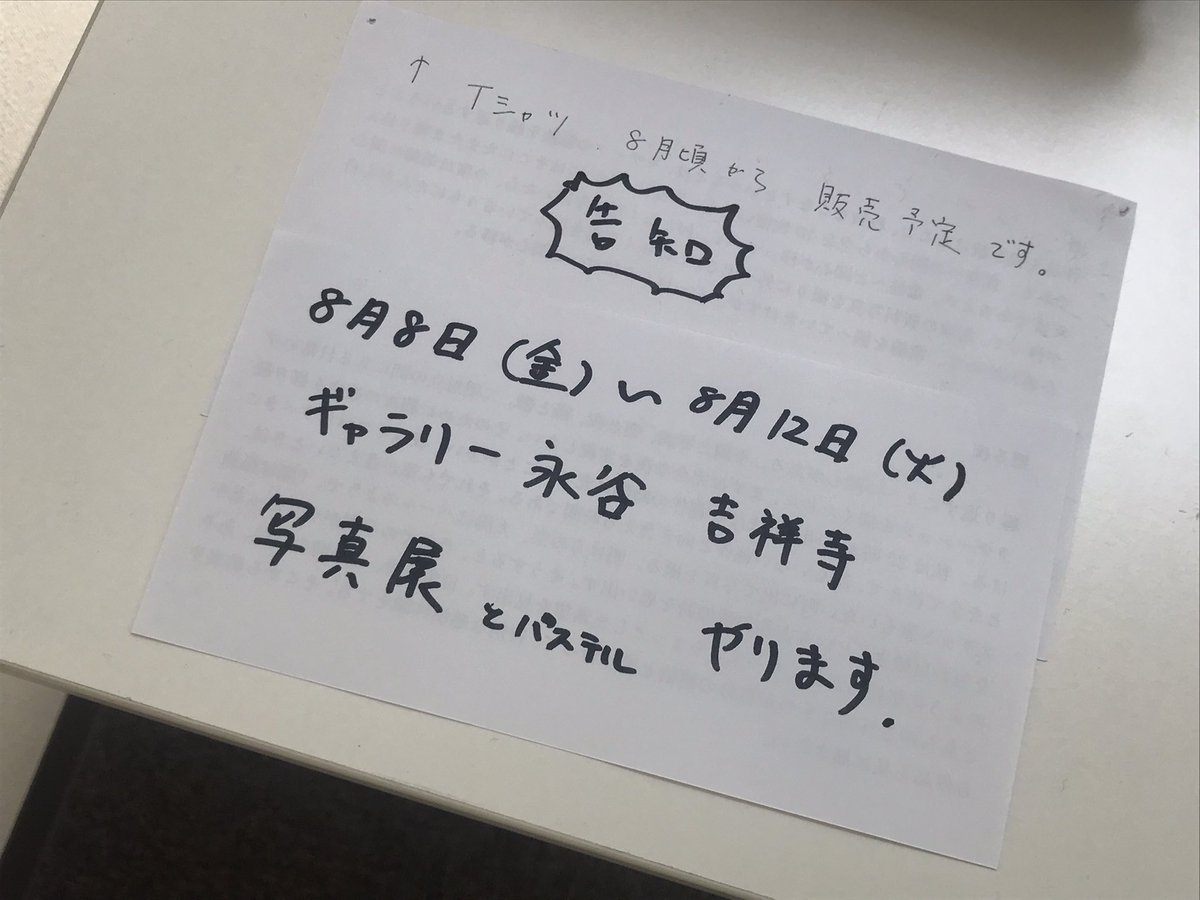 ↑ Tシャツ 8月頃から 販売予定です。
告知
8月8日(金)~8月12日(火)
ギャラリー永谷 吉祥寺
写真展とパステル やります.